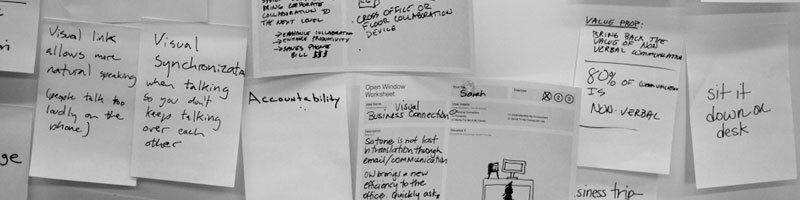 Visual link
allows more
natural speaking
(people talk too
loudly on the
phone)
Visual
when talking
so you don't
keep talking
over each
other
BRING CORPORATE
COLLABORATION TO
THE NEXT LEVEL
→ ENHANCE COLLABORATION
→ ENHANCE PRODUCTIVITY
→ SAVES PHONE
BILL $$$
CROSS OFFICE OR
FLOOR COLLABORATION
DEVICE
Accountability
Open Window
Worksheet
Visual
Business Connection
So tone is not lost
in translation through
email/communication
OW brings a new
efficiency to the
office. Quickly ask
Sarah
Exercise
1 2 3
VALUE PROP:
BRING BACK THE
VALUE OF NON
VERBAL COMMUNICATION
80% OF COMMUNICATION
IS
NON-VERBAL
siness trip
sit it
down on
desk
ge